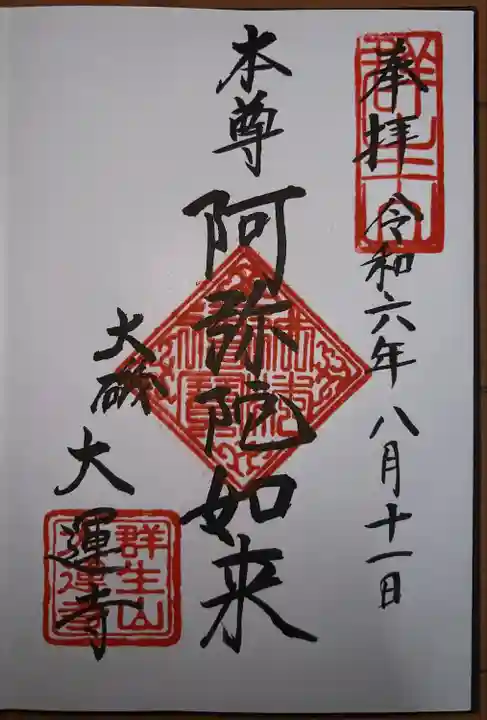 奉拝 令和六年八月十一日
群生山
本尊 阿弥陀如来
大磯 大運寺
群生山
大運寺